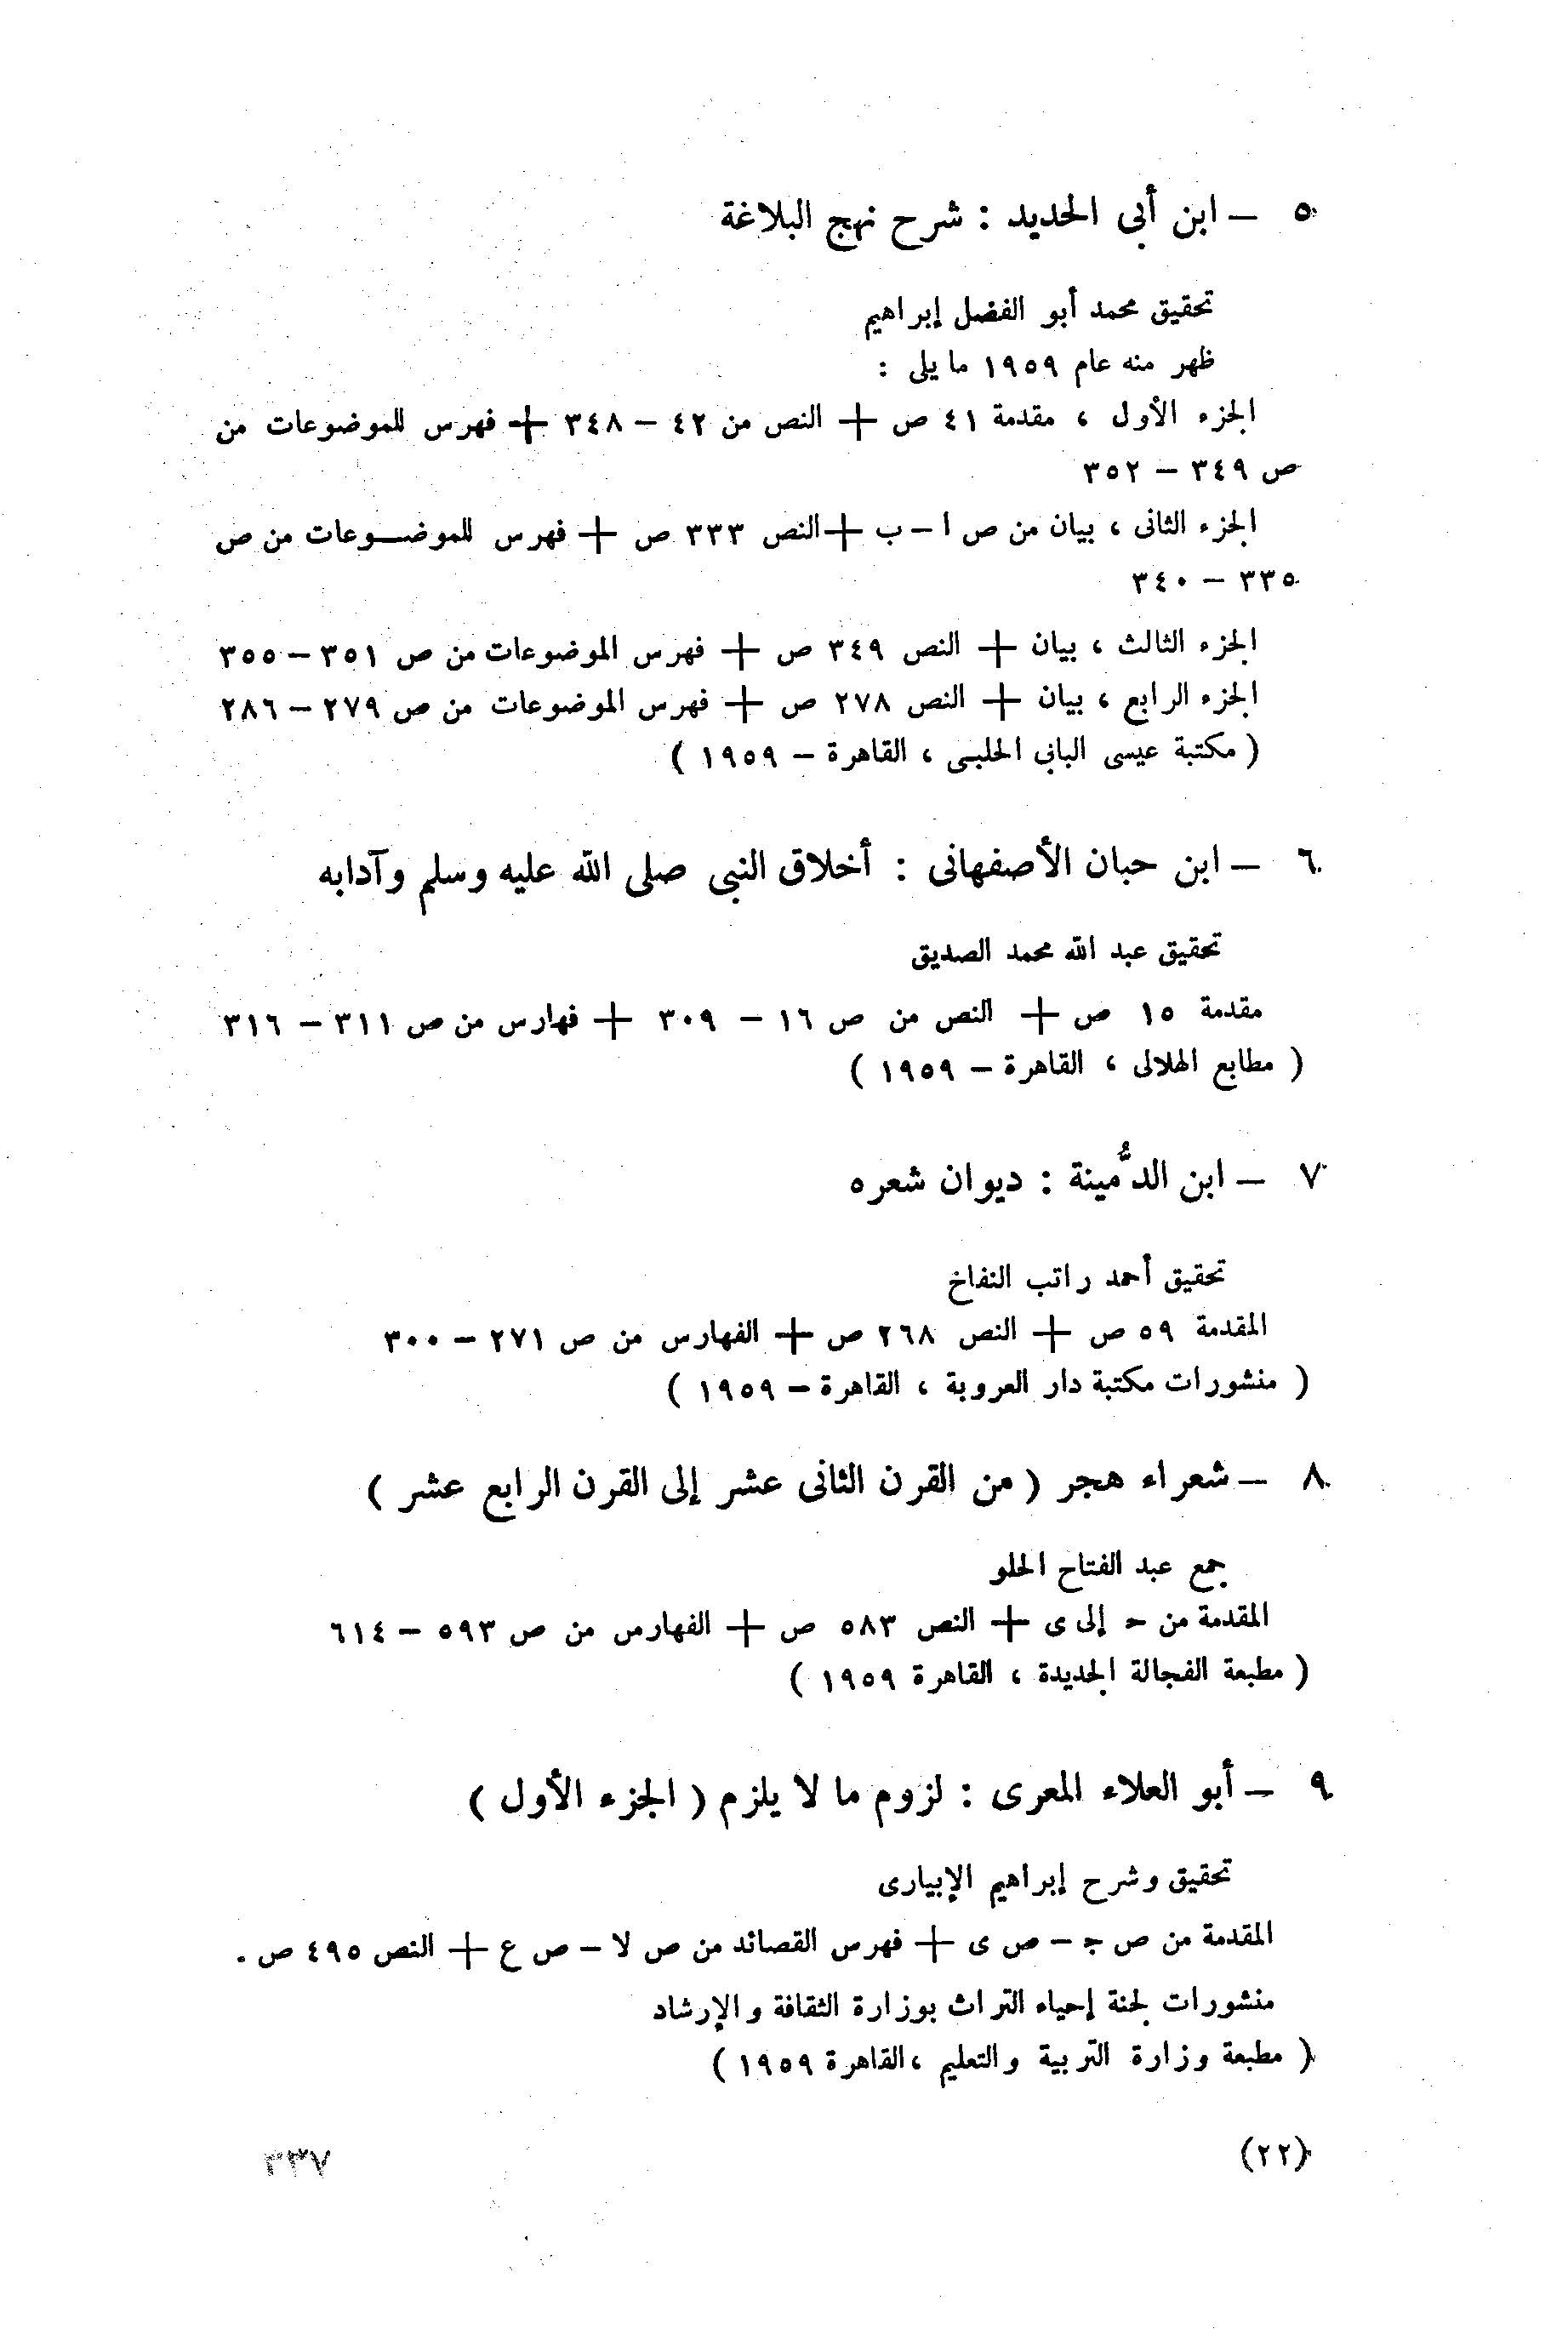 ٥ — ابن أبى الحديد : شرح نهج البلاغة
تحقيق محمد أبو الفضل إبراهيم
ظهر منه عام ١٩٥٩ ما يلى :
الجزء الأول ، مقدمة ٤١ ص + النص من ٤٢ – ٣٤٨ + فهرس للموضوعات من
ص ٣٤٩ – ٣٥٢
الجزء الثانى ، بيان من ص ا – ب + النص ٣٣٣ ص + فهرس للموضـوعات من ص
٣٣٥ – ٣٤٠
الجزء الثالث ، بيان + النص ٣٤٩ ص + فهرس الموضوعات من ص ٣٥١ – ٣٥٥
الجزء الرابع ، بيان + النص ٢٧٨ ص + فهرس الموضوعات من ص ٢٧٩ – ٢٨٦
( مكتبة عيسى البابي الحلبـى ، القاهرة – ١٩٥٩ )
٦ — ابن حبان الأصفهانى : أخلاق النبى صلى الله عليه وسلم وآدابه
تحقيق عبد الله محمد الصديق
مقدمة ١٥ ص + النص من ص ١٦ – ٣٠٩ + فهارس من ص ٣١١ – ٣١٦
( مطابع الهلالى ، القاهرة – ١٩٥٩ )
٧ — ابن الدُّمينة : ديوان شعره
تحقيق أحمد راتب النفاخ
المقدمة ٥٩ ص + النص ٢٦٨ ص + الفهارس من ص ٢٧١ – ٣٠٠
( منشورات مكتبة دار العروبة ، القاهرة – ١٩٥٩ )
٨ — شعراء هجر ( من القرن الثانى عشر إلى القرن الرابع عشر )
جمع عبد الفتاح الحلو
المقدمة من حـ إلى ى + النص ٥٨٣ ص + الفهارس من ص ٥٩٣ – ٦١٤
( مطبعة الفجالة الجديدة ، القاهرة ١٩٥٩ )
٩ — أبو العلاء المعرى : لزوم ما لا يلزم ( الجزء الأول )
تحقيق وشرح إبراهيم الإبيارى
المقدمة من ص جـ – ص ى + فهرس القصائد من ص لا – ص ع + النص ٤٩٥ ص .
منشورات لجنة إحياء التراث بوزارة الثقافة والإرشاد
( مطبعة وزارة التربية والتعليم ، القاهرة ١٩٥٩ )
(٢٢)
٣٣٧